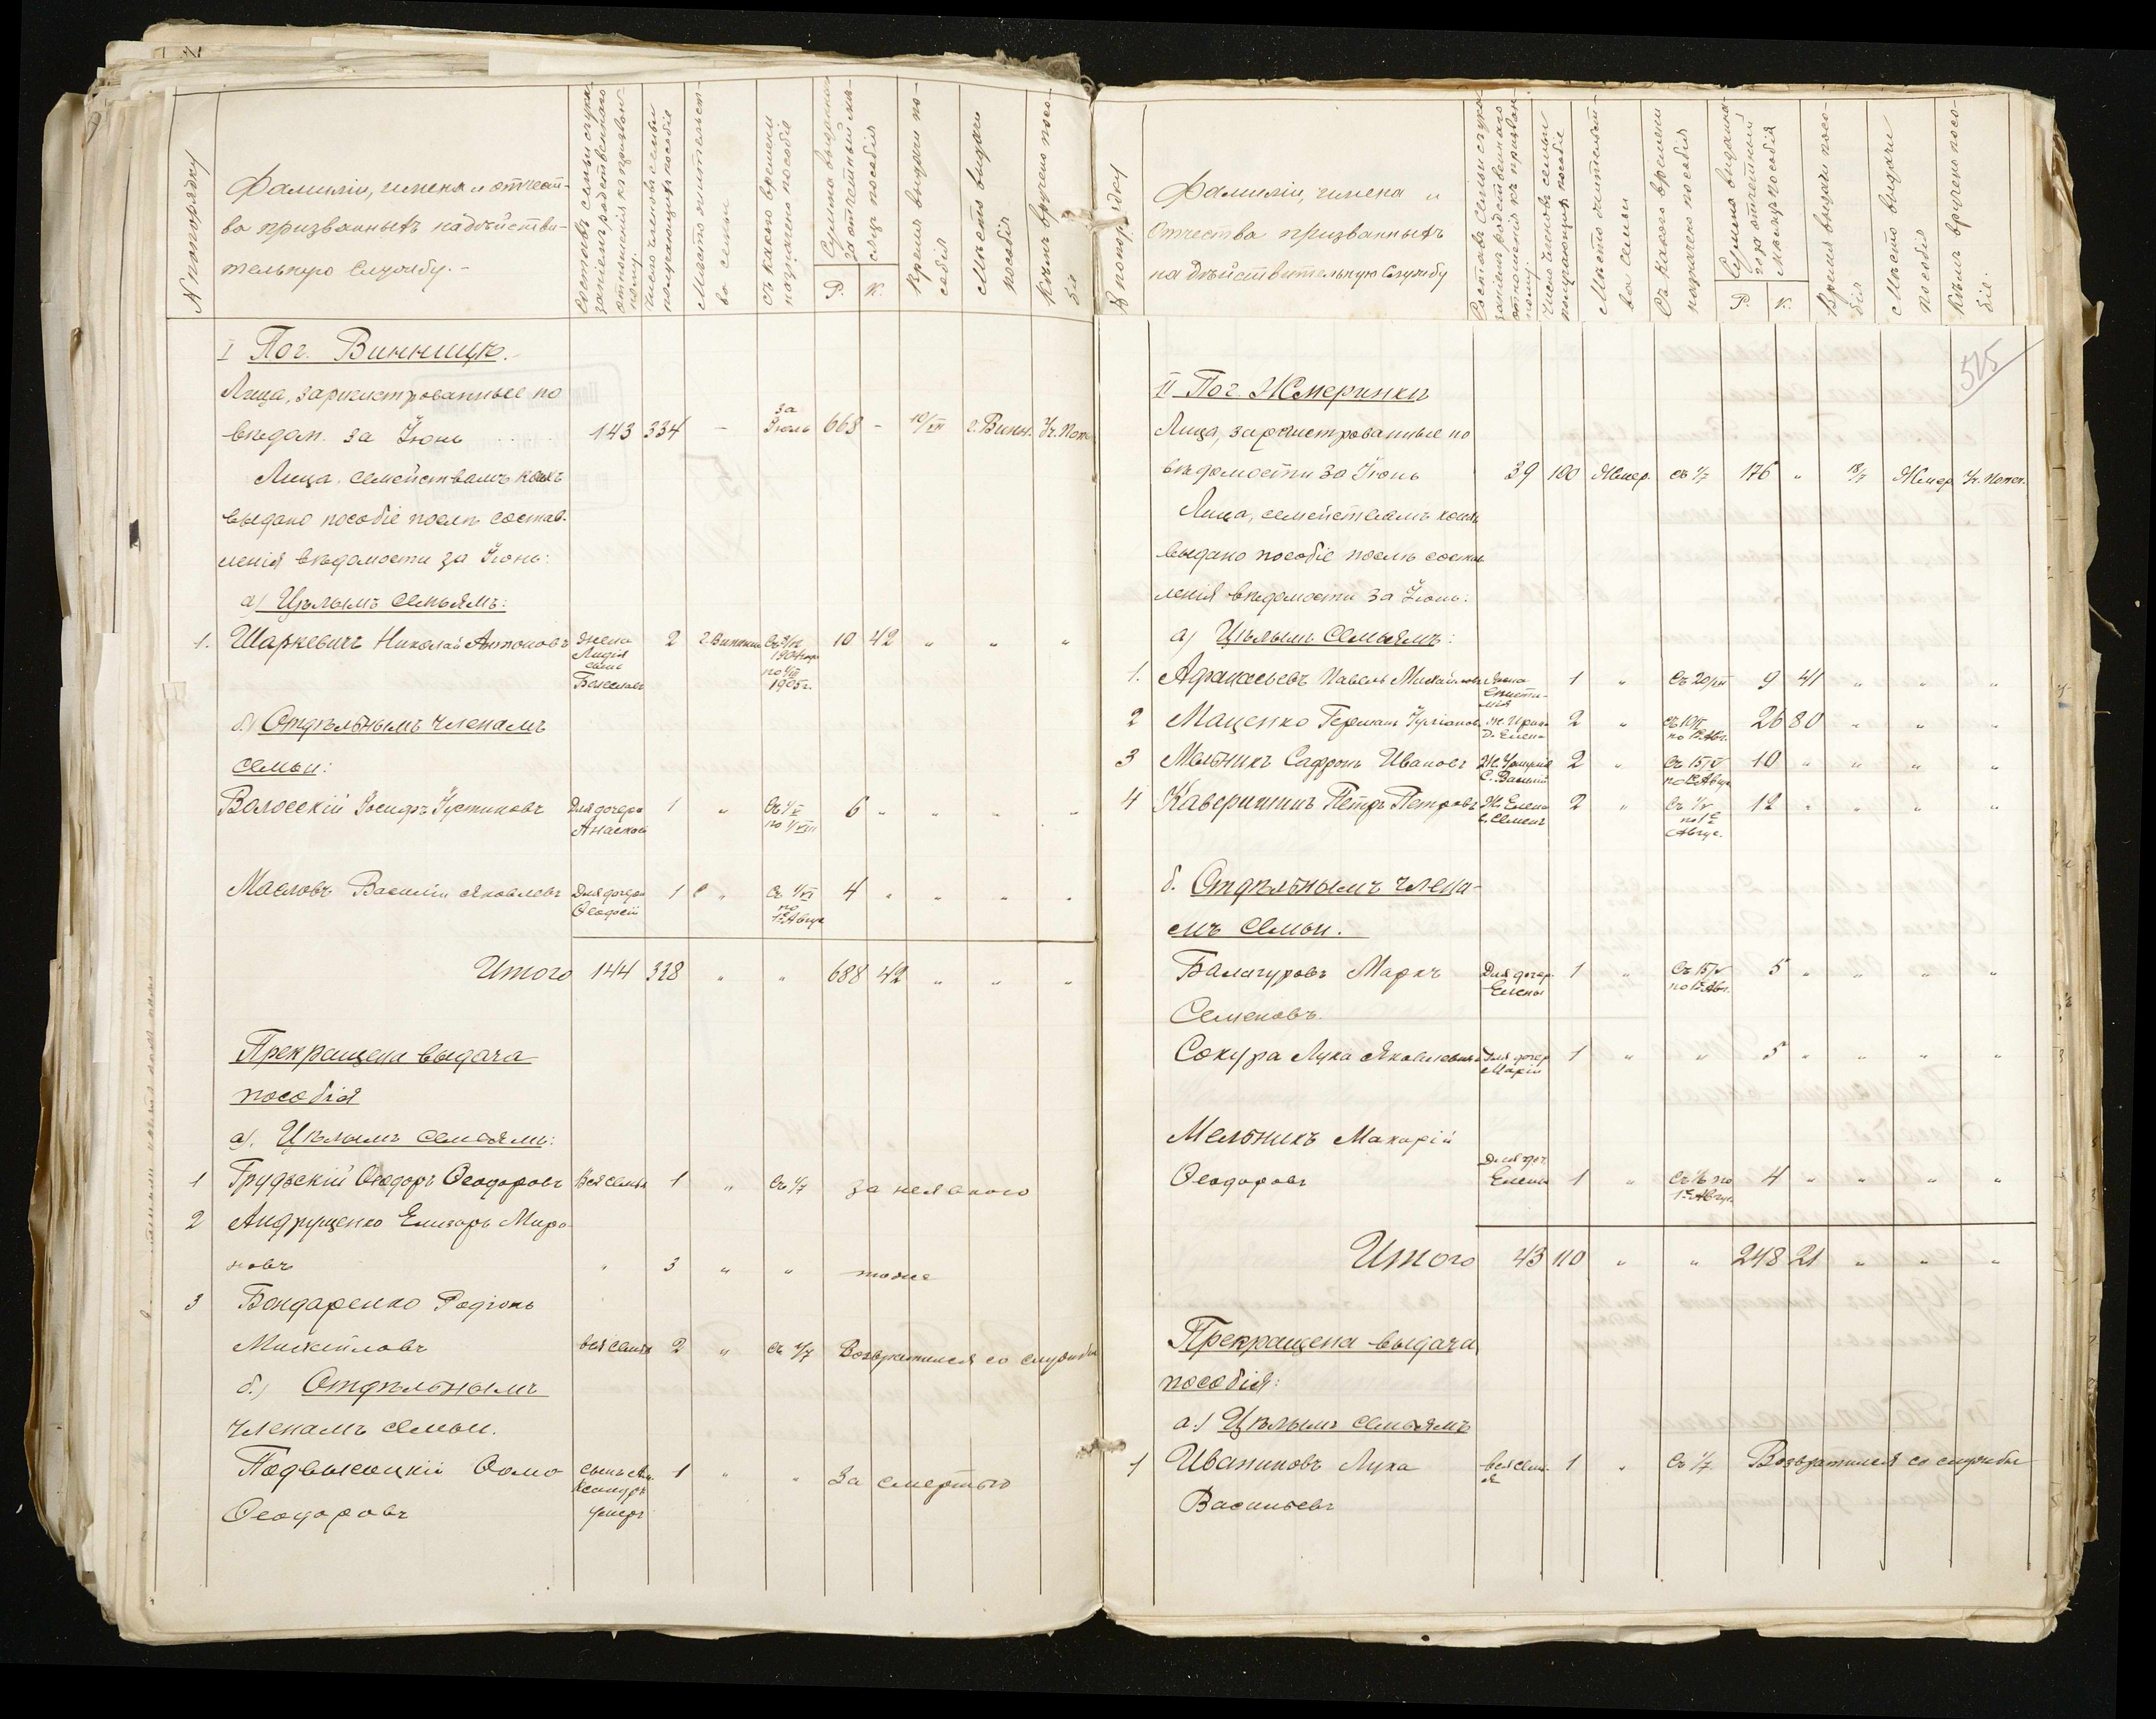 № по порядку
Фамиліи, имена и отчест-
ва призванныхъ на дѣйстви-
тельную службу.-
Составъ семьи съ ука-
заніемъ родственнаго
отношенія къ призван-
ному.
Число членовъ семьи
получающихъ пособія
Мѣсто жительст-
ва семьи
Съ какого времени
назначено пособія
Сумма выданная
за отчетный мѣ-
сяцъ пособія
Р. К.
Время выдачи по-
собія
Мѣсто выдачи
пособія
Кѣмъ вручено посо-
біе
I Поч. Винницы.
Лица, зарегистрованные по
вѣдом. за Іюнь 143 334 - за Іюль 668 - 10/VII г. Винн. Уч. Поп.
Лица, семействамъ коихъ
выдано пособіе послѣ состав-
ленія вѣдомости за Іюнь:
а) Цѣлымъ семьямъ:
1. Шаркевичъ Николай Антоновъ жена Лидія сынъ Болеславъ 2 г. Винница 1904 г. по 1905 г. 10 42 " " "
б.) Отдѣльнымъ членамъ
семьи:
Волосскій Іосифъ Устиновъ Для дочери 1 " Съ 1/VI по 1/VIII 6 " " " "
Масловъ Василій Яковлевъ Для дочери Ѳеодосіи 1 " Съ 1/VI по 1е Авгус 4 " " " "
Итого 144 338 " " 688 42 " " "
Прекращена выдача
пособія
а). Цѣлымъ семьямъ:
1 Грудскій Ѳеодоръ Ѳеодоровъ Вся семья 1 " Съ 1/7 за неявкою
2 Андрущенко Елизаръ Миро-
новъ " 3 " " тоже
3 Бондаренко Родіонъ
Михайловъ вся семья 2 " Съ 1/7 Возвратился со службы
б.) Отдѣльнымъ
членамъ семьи.
Подвысоцкій Ѳома сынъ Александръ умеръ 1 " " За смертью
Ѳеодоровъ
№ по порядку
Фамиліи, имена и
Отчества призванныхъ
на дѣйствительную Службу
Составъ семьи съ ука-
заніемъ родственнаго
отношенія къ призван-
ному.
Число членовъ семьи
получающихъ пособіе
Мѣсто жительст-
ва семьи
Съ какого времени
назначено пособія
Сумма выданная
за отчетный
мѣсяцъ пособія
Р. К.
Время выдачи посо-
бія
Мѣсто выдачи
пособія
Кѣмъ вручено посо-
біе.
525
II Поч. Жмеринки
Лица, зарегистрованные по
вѣдомости за Іюнь 39 100 Жмер. съ 1/7 176 " 18/7 Жмер. Уч. Попеч.
Лица, семействамъ коихъ
выдано пособіе послѣ состав-
ленія вѣдомости за Іюнь:
а) Цѣлымъ семьямъ:
1. Афанасьевъ Павелъ Михайловъ жена 1 " Съ 20/III 9 41 " " "
2 Маценко Германъ Ж. Ирина Д. Елена 2 " по 1е Авг. 26 80 " " "
3 Мельникъ Сафронъ Ивановъ С. Василій 2 " Съ 15/V по 1е Авгус 10 " " " "
4 Каверижинъ Пётръ Петровъ Ж. Елена С. Семенъ 2 " Съ 1/V по 1е Авгус. 12 " " " "
б. Отдѣльнымъ члена-
мъ семьи.
Балагуровъ Маркъ Для дочер. Елены 1 " Съ 15/V по 1е Авг. 5 " " " "
Семеновъ.
Сокура Лука Яковлевичъ Для дочер Маріи 1 " " 5 " " " "
Мельникъ Макарій
Ѳеодоровъ Для доч. Елены 1 " по 1е Авгус. 4 " " " "
Итого 43 110 " " 248 21 " " "
Прекращена выдача
пособія:
а.) Цѣлымъ семьямъ
1 Иваниковъ Лука вся семья 1 " Съ 1/7 Возвратился со службы
Васильевъ